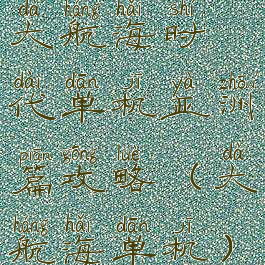 dà háng hǎi shí
大航海时
dài dān jī yà zhōu
代单机亚洲
piān gōng lüè dà
篇攻略(大
háng hǎi dān jī
航海单机)